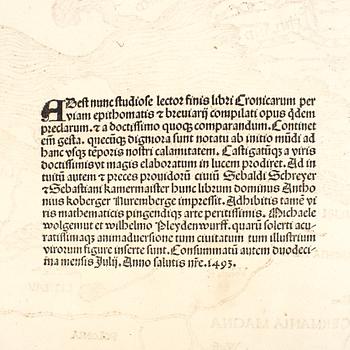 ADest nunc studiose lector finis libri Cronicarum per
viam epithomatis & breuiarij compilati opus qdem
preclarum. & a doctissimo quoqz comparandum. Continet
em̄ gesta. quecūqz digniora sunt notatu ab initio mūdi ad
hanc vsqz tēporis nostri calamitatem. Castigatūqz a viris
doctissimis vt magis elaboratum in lucem prodiret. Ad in
tuitū autem & preces prouidorū ciuiū Sebaldi Schreyer
& Sebastiani kamermaister hunc librum dominus Antho
nius koberger Nuremberge impressit. Adhibitis tamē vi
ris mathematicis pingendiqz arte peritissimis. Michaele
wolgemut et wilhelmo Pleydenwurff. quarū solerti acu
ratissimaqz animaduersione tum ciuitatum tum illustrium
virorum figure inserte sunt. Consummatū autem duodeci
ma mensis Julij. Anno salutis nr̄e. 1493.
GERMANIA MAGNA